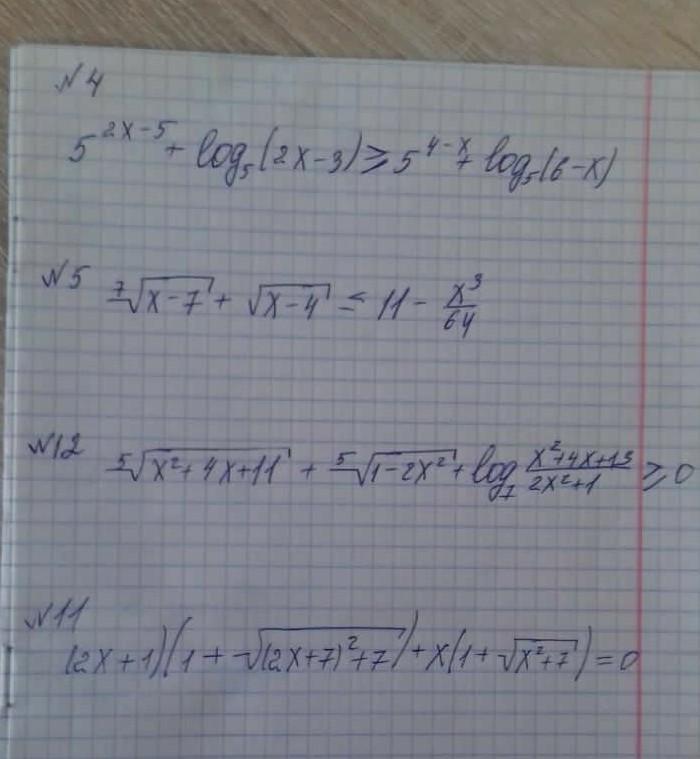 №4
5^{2x-5} + log_5(2x-3) ≥ 5^{4-x} + log_5(6-x)
№5 ⁷√(x-7) + √(x-4) ≤ 11 - x³/64
№12 ⁵√(x²+4x+11) + ⁵√(1-2x²) + log_7 (x²+4x+13)/(2x²+1) ≥ 0
№11
(2x+1)(1+√((2x+7)²+7)) + x(1+√(x²+7)) = 0